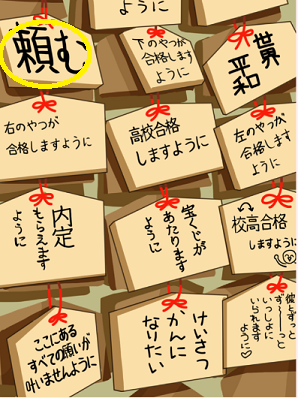 ように
頼む
下のやつが
合格します
ように
世界
平和
右のやつが
合格しますように
高校合格
しますように
左のやつが
合格します
ように
内定
もらえます
ように
宝くじが
あたります
ように
校高合格
しますように
ここにある
すべての願いが
叶いませんように
けいさつ
かんに
なりたい
彼とずっと
ずーーーっと
いっしょに
いられます
ように♡